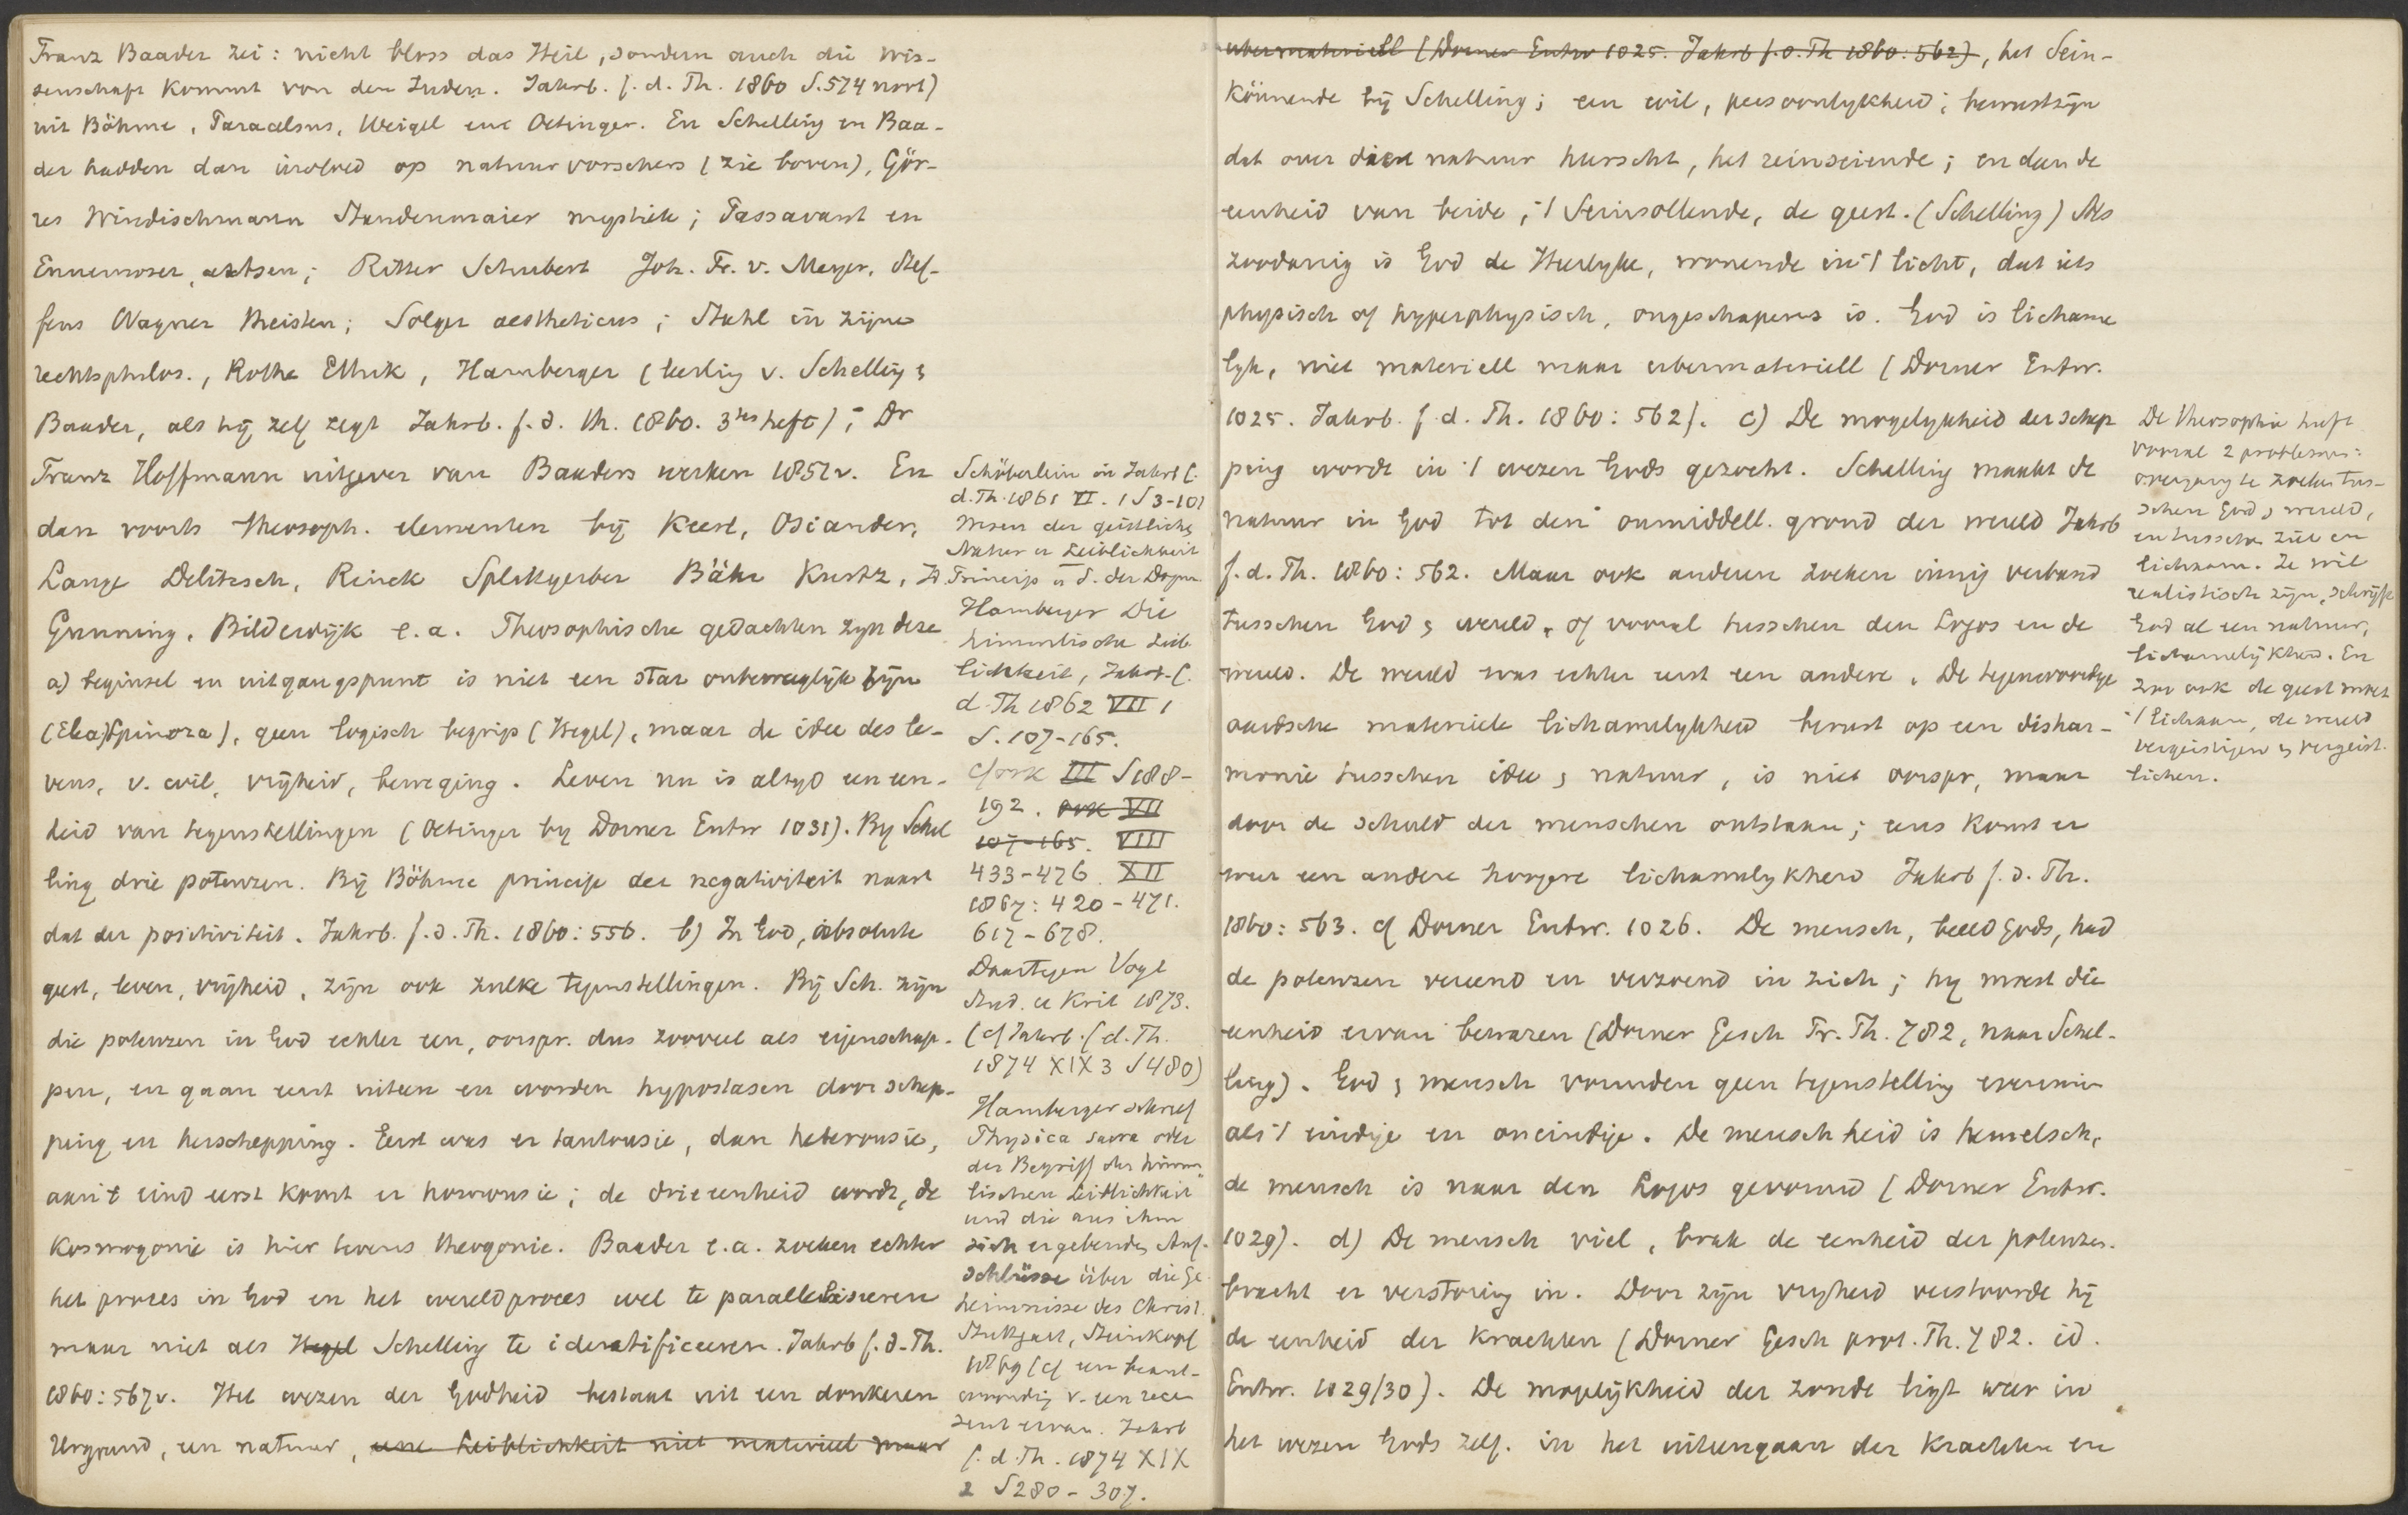 Franz Baader zei: nicht bloss das Heil, sondern auch die Wis-
senschaft kommt von den Juden. Jahrb. f. d. Th. 1860 S. 574 noot)
uit Böhme, Paracelsus, Weigel en Oetinger. En Schelling en Baa-
der hadden dan invloed op natuurvorschers (zie boven), Gör-
res Windischmann Staudenmaier mystiek; Passavant en
Ennemoser, artsen; Ritter Schubert Joh. Fr. v. Meyer, Stef-
fens Wagner theisten; Solger aestheticus; Stahl in zijne
rechtsphilos., Rothe Ethik, Hamberger (leerling v. Schelling &
Baader, als hij zelf zegt Jahrb. f. d. Th. 1860. 3tes heft); Dr
Franz Hoffmann uitgever van Baaders werken 1851v. En
dan voorts theosoph. elementen bij Keerl, Osiander,
Lange Delitzsch, Rinck Splittgerber Bähr Kurtz,
Gunning, Bilderdijk e.a. Theosophische gedachten zijn deze
a) beginsel en uitgangspunt is niet een star onbeweeglijk zijn
(Elea, Spinoza), geen logisch begrip (Hegel), maar de idee des le-
vens, v. wil, vrijheid, beweging. Leven nu is altijd een een-
heid van tegenstellingen (Oetinger by Dorner Entw 1031). By Schel
ling drie potenzen. Bij Böhme principe der negativiteit naast
dat der positiviteit. Jahrb. f. d. Th. 1860: 556. b) In God, absolute
geest, leven, vrijheid, zijn ook zulke tegenstellingen. Bij Sch. zijn
die potenzen in God echter een, oorspr. dus zooveel als eigenschap-
pen, en gaan eerst uiteen en worden hypostasen door schep-
ping en herschepping. Eerst was er tautousie, dan heterousie,
aan 't eind eerst komt er homousie; de drieeenheid wordt, de
Kosmogonie is hier tevens theogonie. Baader e.a. zoeken echter
het proces in God en het wereldproces wel te paralleliseeren
maar niet als Hegel Schelling te identificeeren. Jahrb f. d. Th.
1860: 567v. Het wezen der Godheid bestaat uit een donkeren
Urgrund, een natuur, eene Leiblichkeit niet materieel maar
Schöberlein in Jahrb f.
d. Th. 1861 VI. 1 S 3-101
Wesen der geistlichen
Natur u Leiblichkeit
Hamberger Die
himmlische Leib
lichkeit, Jahrb. f.
d. Th 1862 VII 1
S. 107-165.
cf ook III S 188-
192. ook VII
107-165. VIII
433-476. XII
1867: 420-471.
617-678.
Daartegen Vogt
Stud. u Krit 1873.
(cf Jahrb. f. d. Th.
1874 XIX 3 S 480)
Hamberger schreef
Physica sacra oder
der Begriff der himm
lischen Leiblichkeit
und die aus ihm
sich ergebenden Auf-
schlüsse über die Ge
heimnisse des Christ.
Stuttgart, Steinkopf
1869 (cf een beant-
woording v. een recen
zent ervan. Jahrb
f. d. Th. 1874 XIX
2 S 280-307.
ubermateriell (Dorner Entw 1025. Jahrb f. d. Th 1860: 562), het Sein-
könnende bij Schelling; een wil, persoonlykheid; bewustzijn
dat over die natuur heerscht, het reinseiende; en dan de
eenheid van beide, 't Seinsollende, de geest. (Schelling) Als
zoodanig is God de Heerlyke, wonende in 't licht, dat iets
physisch of hyperphysisch, ongeschapens is. God is lichame
lyk, niet materiell maar ubermateriell (Dorner Entw.
1025. Jahrb. f. d. Th. 1860: 562). c) De mogelykheid der schep
ping wordt in 't wezen Gods gezocht. Schelling maakt de
natuur in God tot den onmiddell. grond der wereld Jahrb
f. d. Th. 1860: 562. Maar ook anderen zoeken innig verband
tusschen God & wereld, of vooral tusschen den Logos en de
wereld. De wereld was echter eerst een andere. De tegenwoordige
aardsche materieele lichamelykheid berust op een dishar-
monie tusschen idee & natuur, is niet oorspr, maar
door de schuld der menschen ontstaan; eens komt er
weer een andere hoogere lichamelykheid Jahrb f. d. Th.
1860: 563. cf Dorner Entw. 1026. De mensch, beeld Gods, had
de potenzen vereend en verzoend in zich; hy moest die
eenheid ervan bewaren (Dorner Gesch Pr. Th. 782, naar Schel-
ling). God & mensch vormden geen tegenstelling evenmin
als 't eindige en oneindige. De menschheid is hemelsch,
de mensch is naar den Logos gevormd (Dorner Entw.
1029). d) De mensch viel, brak de eenheid der potenzen.
bracht er verstoring in. Door zijn vryheid verstoorde hij
de eenheid der krachten (Dorner Gesch prot. Th. 782. id.
Entw. 1029/30). De mogelijkheid der zonde ligt weer in
het wezen Gods zelf. in het uiteengaan der krachten en
De theosophie heeft
vooral 2 problemen:
overgang te zoeken tus-
schen God & wereld,
en tusschen ziel en
lichaam. Ze wil
realistisch zijn, schrijft
God al een natuur,
lichamelijkheid. En
zoo ook de geest moet
't lichaam, de wereld
vergeistigen & vergeist-
lichen.